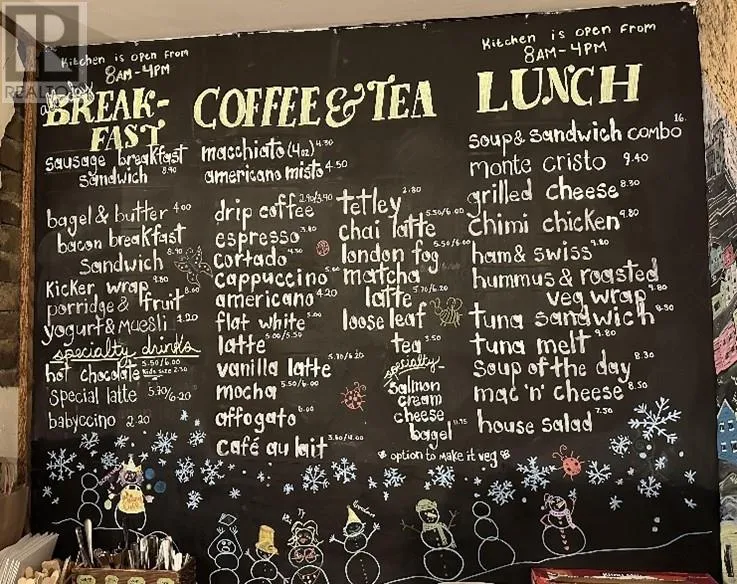 REALTOR®
Kitchen is open from
8AM-4PM
all day
BREAK-
FAST
sausage breakfast
sandwich 8.40
bagel & butter 4.00
bacon breakfast
sandwich 8.40
kicker wrap 9.80
porridge & fruit 8.00
yogurt & muesli 4.20
specialty drinks
hot chocolate 5.50/6.00
kids size 2.30
special latte 5.70/6.20
babyccino 2.20
COFFEE & TEA
macchiato (4oz) 4.30
americano misto 4.50
drip coffee 2.90/3.40
espresso 3.80
cortado 4.30
cappuccino 5.00
americano 4.20
flat white 5.00
latte 5.00/5.50
vanilla latte 5.70/6.20
mocha 5.50/6.00
affogato 6.00
café au lait 3.50/4.00
tetley 2.80
chai latte 5.50/6.00
london fog 5.50/6.00
matcha
latte 5.70/6.20
loose leaf
tea 3.50
specialty
salmon
cream
cheese
bagel 11.75
Kitchen is open from
8AM-4PM
LUNCH
soup & sandwich combo 16.
monte cristo 9.40
grilled cheese 8.30
chimi chicken 9.80
ham & swiss 9.80
hummus & roasted
veg wrap 9.80
tuna sandwich 8.50
tuna melt 9.80
soup of the day 8.30
mac 'n' cheese 8.50
house salad 7.50
* option to make it veg *